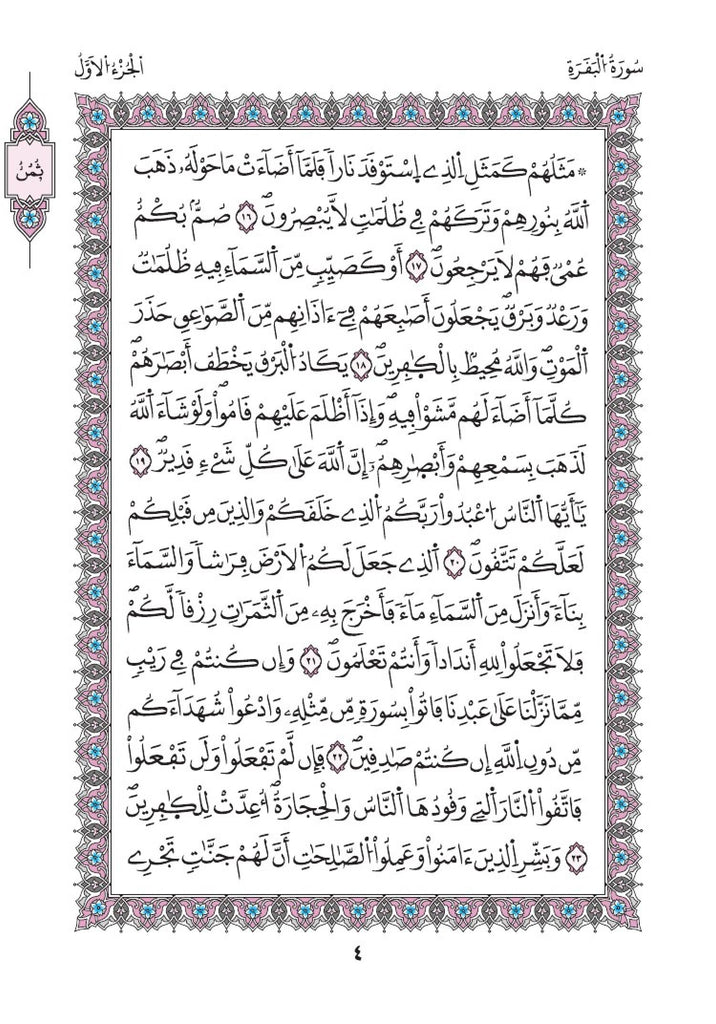 سُورَةُ اُ۬لْبَقَرَةِ
اَ۬لْجُزْءُ اُ۬لْأَوَّلُ
ثُمُنُ
* مَثَلُهُمْ كَمَثَلِ اِ۬لذِے اِ۪سْتَوْقَدَ نَاراٗ فَلَمَّآ أَضَآءَتْ مَا حَوْلَهُۥ ذَهَبَ
اَ۬للَّهُ بِنُورِهِمْ وَتَرَكَهُمْ فِے ظُلُمَٰتٖ لَّا يُبْصِرُونَۖ ١٦ صُمُّۢ بُكْمٌ
عُمْيٞ فَهُمْ لَا يَرْجِعُونَۖ ١٧ أَوْ كَصَيِّبٖ مِّنَ اَ۬لسَّمَآءِ فِيهِ ظُلُمَٰتٞ
وَرَعْدٞ وَبَرْقٞۖ يَجْعَلُونَ أَصَٰبِعَهُمْ فِےٓ ءَاذَانِهِم مِّنَ اَ۬لصَّوَٰعِقِ حَذَرَ
اَ۬لْمَوْتِۖ وَاللَّهُ مُحِيطُۢ بِالْكٰ۪فِرِينَۖ ١٨ يَكَادُ اُ۬لْبَرْقُ يَخْطَفُ أَبْصَٰرَهُمْۖ
كُلَّمَآ أَضَآءَ لَهُم مَّشَوْاْ فِيهِۖ وَإِذَآ أَظْلَمَ عَلَيْهِمْ قَامُواْۖ وَلَوْ شَآءَ اَ۬للَّهُ
لَذَهَبَ بِسَمْعِهِمْ وَأَبْصٰ۪رِهِمُۥٓۖ إِنَّ اَ۬للَّهَ عَلَىٰ كُلِّ شَےْءٖ قَدِيرٞۖ ١٩
يَٰٓأَيُّهَا اَ۬لنَّاسُ اُ۟عْبُدُواْ رَبَّكُمُ اُ۬لذِے خَلَقَكُمْ وَالذِينَ مِن قَبْلِكُمْ
لَعَلَّكُمْ تَتَّقُونَۖ ٢٠ اَ۬لذِے جَعَلَ لَكُمُ اُ۬لْأَرْضَ فِرَٰشاٗ وَالسَّمَآءَ
بِنَآءٗ وَأَنزَلَ مِنَ اَ۬لسَّمَآءِ مَآءٗ فَأَخْرَجَ بِهِۦ مِنَ اَ۬لثَّمَرَٰتِ رِزْقاٗ لَّكُمْۖ
فَلَا تَجْعَلُواْ لِلهِ أَندَاداٗ وَأَنتُمْ تَعْلَمُونَۖ ٢١ وَإِن كُنتُمْ فِے رَيْبٖ
مِّمَّا نَزَّلْنَا عَلَىٰ عَبْدِنَا فَاتُواْ بِسُورَةٖ مِّن مِّثْلِهِۦ وَادْعُواْ شُهَدَآءَكُم
مِّن دُونِ اِ۬للَّهِ إِن كُنتُمْ صَٰدِقِينَۖ ٢٢ فَإِن لَّمْ تَفْعَلُواْ وَلَن تَفْعَلُواْ
فَاتَّقُواْ اُ۬لنَّارَ اَ۬لتِے وَقُودُهَا اَ۬لنَّاسُ وَالْحِجَارَةُۖ أُعِدَّتْ لِلْكٰ۪فِرِينَۖ
٢٣ وَبَشِّرِ اِ۬لذِينَ ءَامَنُواْ وَعَمِلُواْ اُ۬لصَّٰلِحَٰتِ أَنَّ لَهُمْ جَنَّٰتٖ تَجْرِے
٤